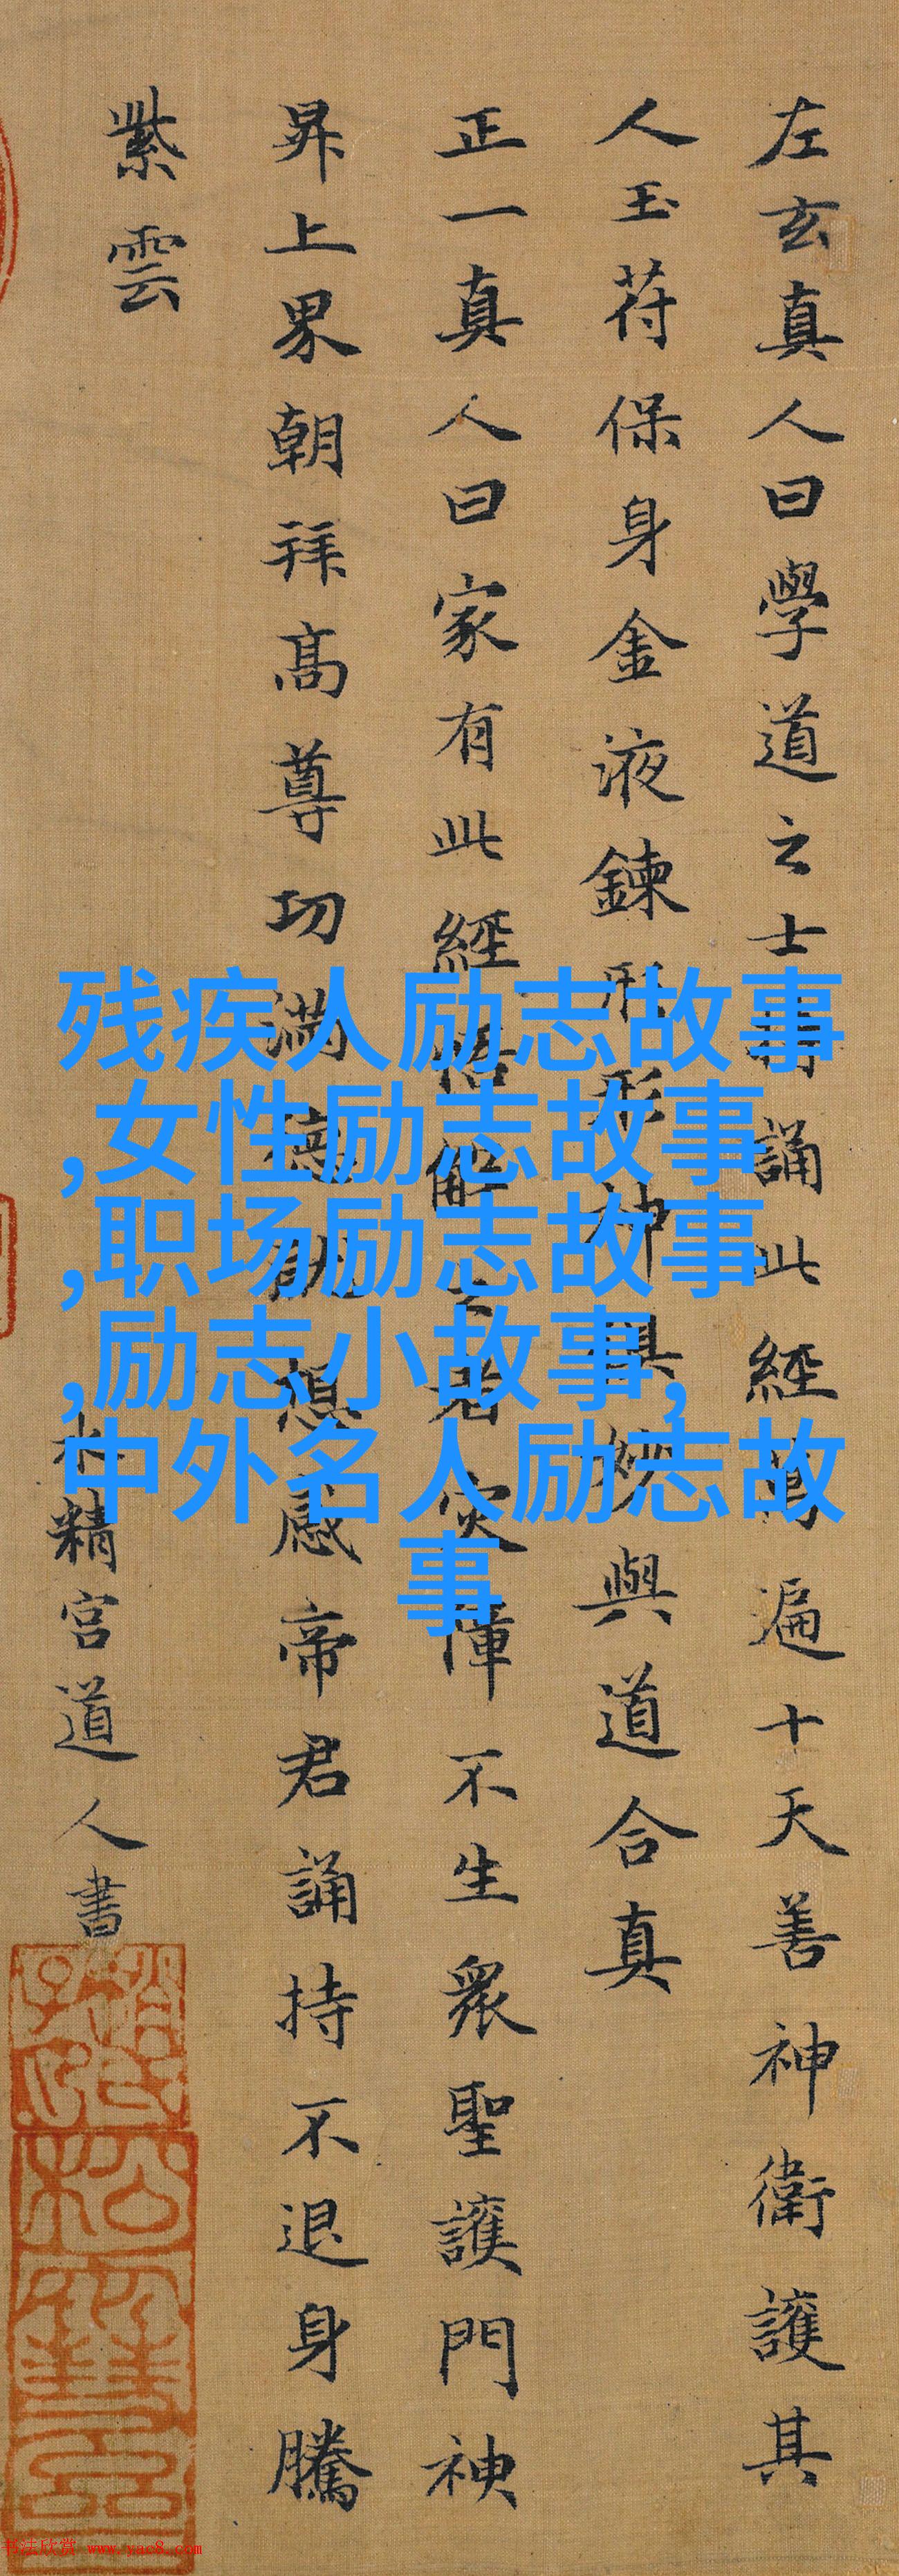 左玄真人曰學道之士持誦此經萬遍十天善神衛護其
人玉苻保身金液鍊形形神俱妙與道合真
正一真人曰家有此經悟解之者災障不生眾聖護門神
昇上界朝拜高尊功滿德就想感帝君誦持不退身騰
紫雲
水精宮道人書
残疾人励志故事
,女性励志故事
,职场励志故事
,励志小故事,
中外名人励志故
事
书法欣赏 www.yac8.com